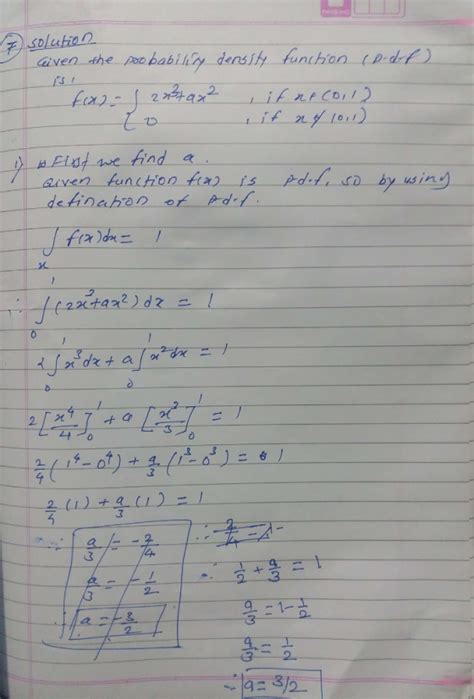 7 solution
Given the probability density function (P.d.f)
is,
f(x) = { 2x³+ax² , if x∈(0,1)
0 , if x∉(0,1)
i) First we find a.
Given function f(x) is P.d.f, so by using
defination of P.d.f.
∫x f(x)dx = 1
∴ ∫₀¹ (2x³+ax²) dx = 1
2∫₀¹ x³dx + a∫₀¹ x²dx = 1
2[x⁴/4]₀¹ + a[x²/3]₀¹ = 1
2/4 (1⁴-0⁴) + a/3 (1³-0³) = 1
2/4 (1) + a/3 (1) = 1
∴ a/3 = -2/4
a/3 = -1/2
∴ a = -3/2
∴ 1/2 + a/3 = 1
a/3 = 1-1/2
a/3 = 1/2
∴ a = 3/2